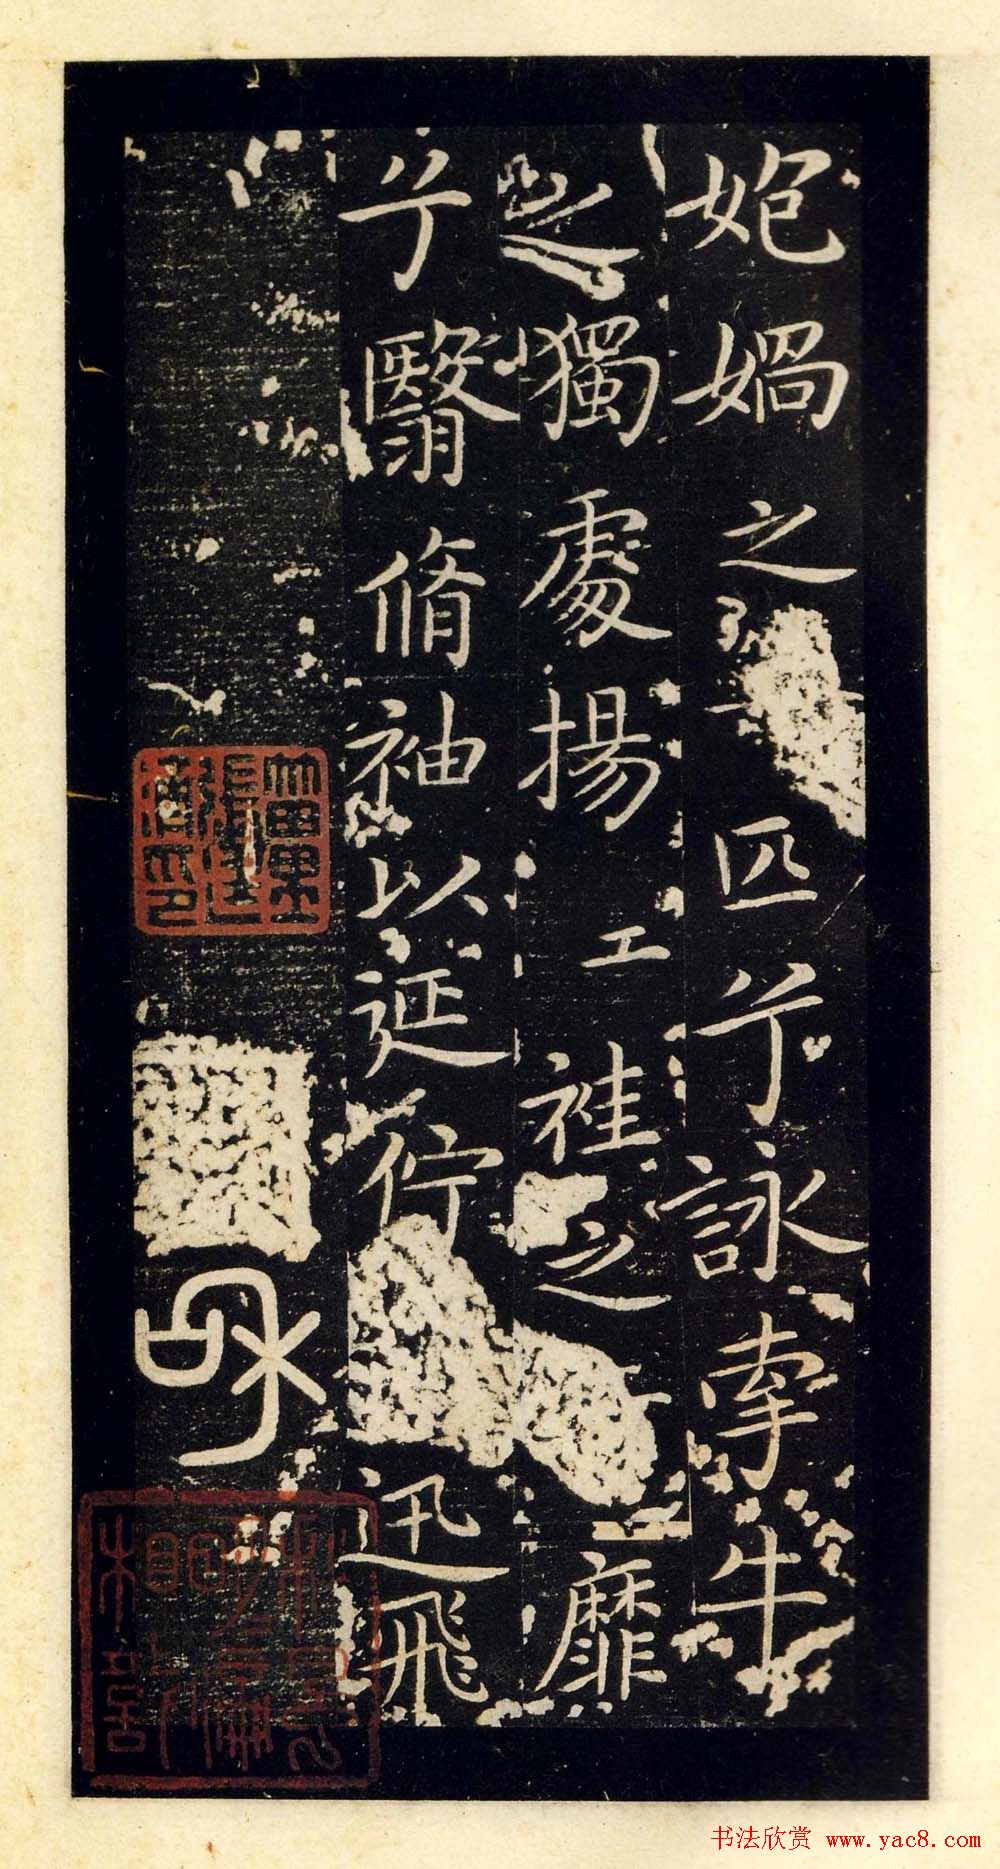 㚿媧之匹兮詠牽牛
之獨處揚袿之靡
兮翳脩袖以延佇迅飛
书法欣赏 www.yac8.com